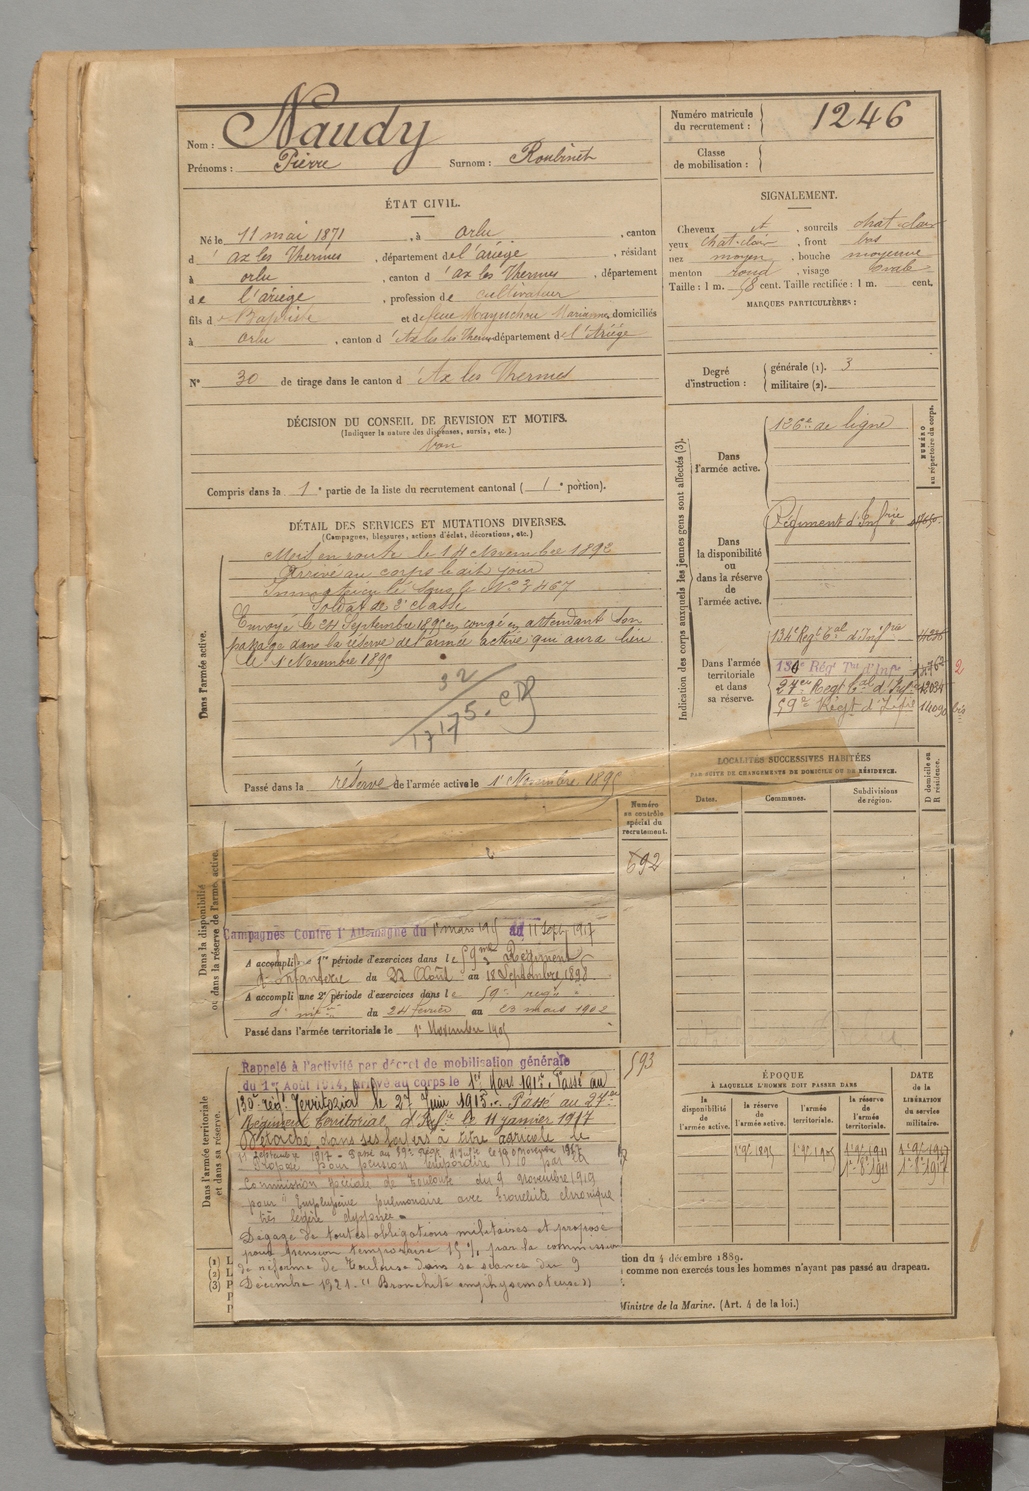 Nom : Naudy
Prénoms : Pierre Surnom : Roubinet
Numéro matricule du recrutement : 1246
Classe de mobilisation :
ÉTAT CIVIL.
Né le 11 mai 1871, à orlu, canton
d' ax les Thermes, département de l'ariège, résidant
à orlu, canton d' ax les Thermes, département
de l'ariège, profession de cultivateur
fils de Baptiste et de Marianne, domiciliés
à orlu, canton d'Ax les Thermes département de l'Ariège
N° 30 de tirage dans le canton d'Ax les Thermes
SIGNALEMENT.
Cheveux et, sourcils chat-clair
yeux chat-clair, front bas
nez moyen, bouche moyenne
menton rond, visage ovale
Taille : 1 m. 58 cent. Taille rectifiée : 1 m. cent.
MARQUES PARTICULIÈRES :
Degré d'instruction : générale (1). 3
militaire (2).
DÉCISION DU CONSEIL DE REVISION ET MOTIFS.
(Indiquer la nature des dispenses, sursis, etc.)
bon
Compris dans la 1e partie de la liste du recrutement cantonal (1e portion).
DÉTAIL DES SERVICES ET MUTATIONS DIVERSES.
(Campagnes, blessures, actions d'éclat, décorations, etc.)
Dans l'armée active.
Mis en route le 14 Novembre 1892
Arrivé au corps le dit jour
Immatriculé sous le N° 3467
Soldat de 2e classe
Envoyé le 24 Septembre 1895 en congé en attendant son
passage dans la réserve de l'armée active qui aura lieu
le 1 Novembre 1895
32
Passé dans la réserve de l'armée active le 1r Novembre 1895
Indication des corps auxquels les jeunes gens sont affectés (3).
NUMÉRO au répertoire du corps.
Dans l'armée active.
126e de ligne
Dans la disponibilité ou dans la réserve de l'armée active.
Régiment d'Infrie
Dans l'armée territoriale et dans sa réserve.
134e Regt tal d'Infrie
130e Régt Tal d'Infie
27e Regt tal d'Infie 12034
59e Régt d'Infie 14090 bis
2
LOCALITÉS SUCCESSIVES HABITÉES
PAR SUITE DE CHANGEMENTS DE DOMICILE OU DE RÉSIDENCE.
Dates. Communes. Subdivisions de région. D domicile ou R résidence.
Numéro au contrôle spécial du recrutement.
692
Dans la disponibilité ou dans la réserve de l'armée active.
Campagnes Contre l'Allemagne du 1r mars 1915 au 11 Sept. 1917
A accompli une 1re période d'exercices dans le 59me Régiment
d'Infanterie du 22 Août au 18 Septembre 1898
A accompli une 2e période d'exercices dans le 59e regt
d'infie du 24 fevrier au 23 mars 1902
Passé dans l'armée territoriale le 1r Novembre 1905
593
Dans l'armée territoriale et dans sa réserve.
Rappelé à l'activité par décret de mobilisation générale
du 1er Août 1914, arrivé au corps le 1er Mars 1915. Passé au
130e régt Territorial le 27 Juin 1915. Passé au 27me
Régiment Territorial d'Infie le 11 janvier 1917
Détaché dans ses foyers à titre agricole le
11 septembre 1917 - Passé au 59e Régt d'Infie le 19 novembre 1917
Proposé pour pension temporaire 10 par la
Commission Spéciale de Toulouse du 9 novembre 1919
pour "Emphysème pulmonaire avec bronchite chronique
très légère dyspnée"
Dégagé de toutes obligations militaires et proposé
pour pension temporaire 15% par la commission
de réforme de Toulouse dans sa séance du 9
Décembre 1921 "Bronchite emphysémateuse"
ÉPOQUE
À LAQUELLE L'HOMME DOIT PASSER DANS
DATE de la LIBÉRATION du service militaire.
la disponibilité de l'armée active. la réserve de l'armée active. l'armée territoriale. la réserve de l'armée territoriale.
1r 9e 1895 1r 9e 1905 1r 9e 1911 1r 9e 1917
1r 8e 1911 1r 8e 1917
(1) L
(2) L
(3) P
P
P
tion du 4 décembre 1889.
comme non exercés tous les hommes n'ayant pas passé au drapeau.
Ministre de la Marine. (Art. 4 de la loi.)